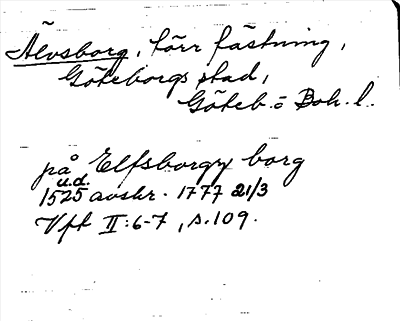 Älvsborg, förr fästning,
Göteborgs stad,
Göteb. o Boh. l.
på Elfsborgx borg
u.d.
1525 avskr. 1777 21/3
Vft II:6-7, s. 109.